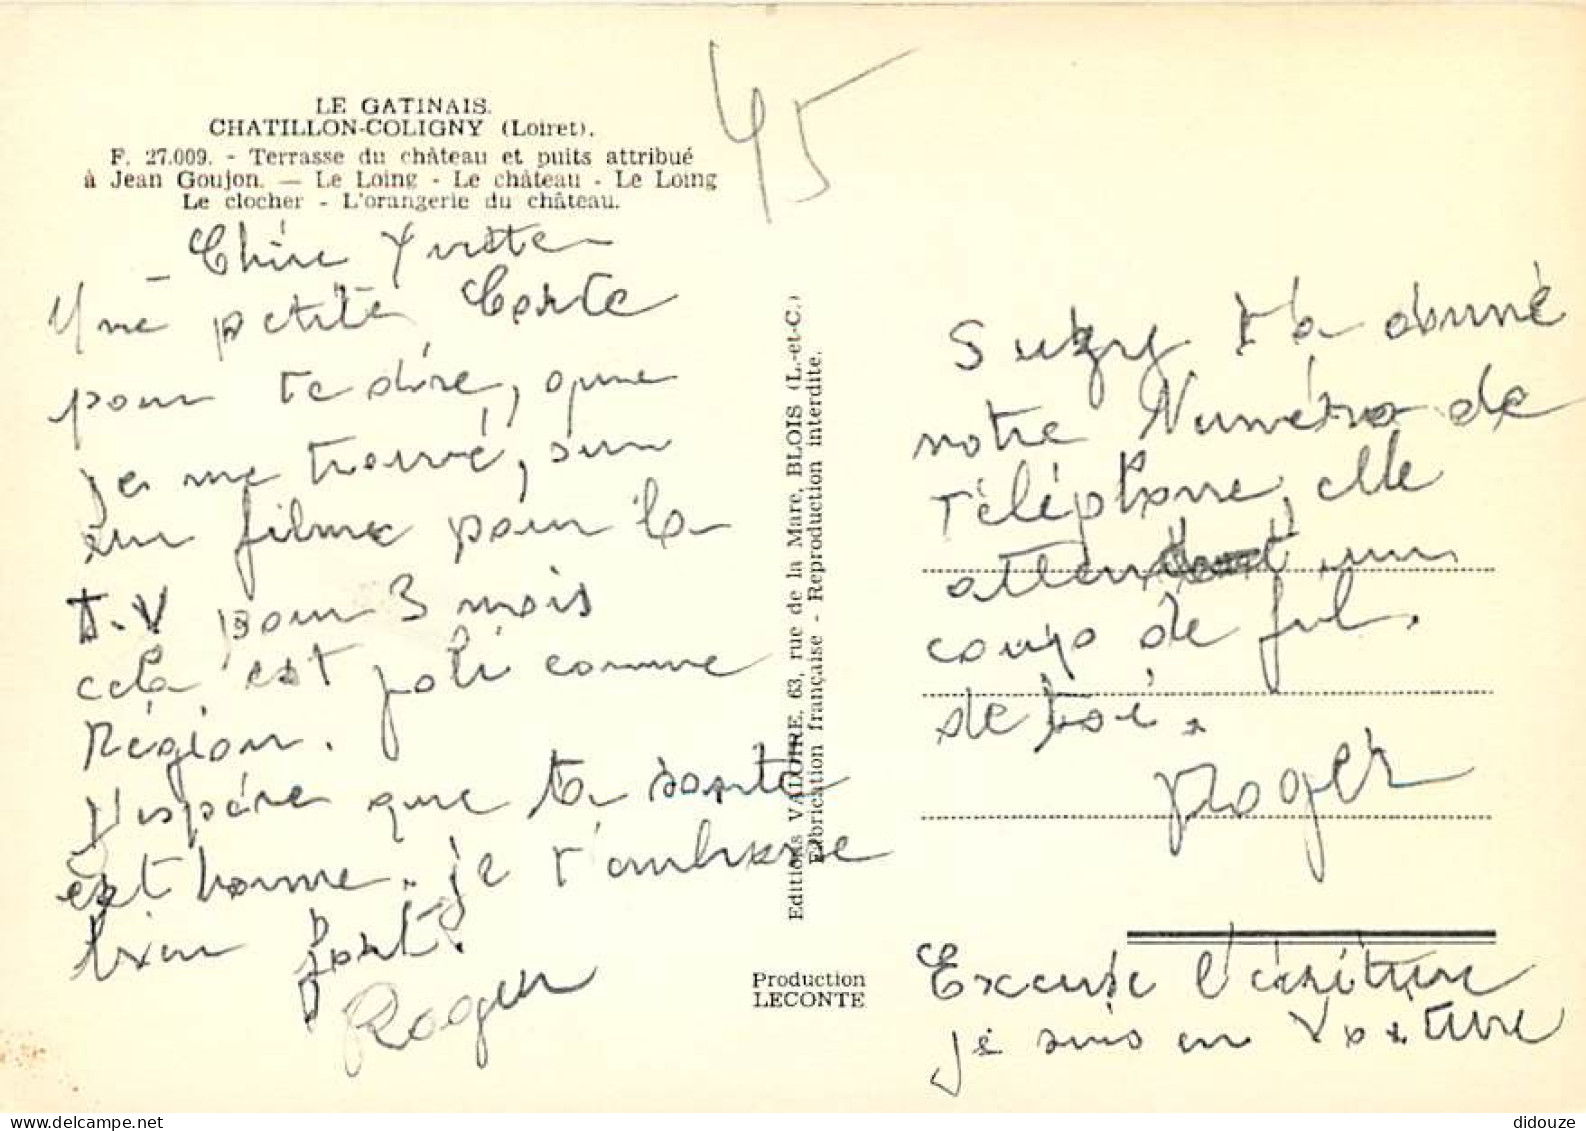 LE GATINAIS.
CHATILLON-COLIGNY (Loiret).
F. 27.009. - Terrasse du château et puits attribué
à Jean Goujon. — Le Loing - Le château - Le Loing
Le clocher - L'orangerie du château.
45
- Chère Yvette
Une petite Carte
pour te dire, que
je me trouvé, sur
un filme pour la
T.V pour 3 mois
cela est joli comme
Région.
J'espère que ta sante
est bonne. je t'embrasse
bien fort.
Roger
Editions VALOIRE, 63, rue de la Mare, BLOIS (L.-et-C.)
Fabrication française - Reproduction interdite.
Production
LECONTE
Suzy t'a donné
notre Numéro de
Téléphone, elle
attend un
coup de fil,
de toi.
Roger
Excuse l'écriture
je suis en voiture
didouze